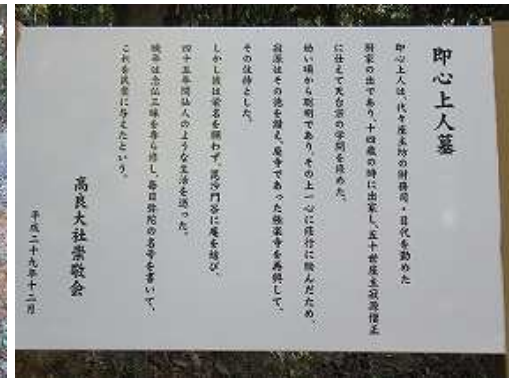 即心上人墓
即心上人は、代々座主坊の財務司・目代を勤めた
厨家の出であり、十四歳の時に出家し、五十世座主寂源僧正
に仕えて天台宗の学問を修めた。
幼い頃から聡明であり、その上一心に修行に励んだため、
寂源はその徳を讃え、廃寺であった極楽寺を再興して、
その住持とした。
しかし彼は栄名を願わず、毘沙門谷に庵を結び、
四十五年間仙人のような生活を送った。
晩年は念仏三昧を専ら修し、毎日弥陀の名号を書いて、
これを民衆に与えたという。
高良大社崇敬会
平成二十九年十二月